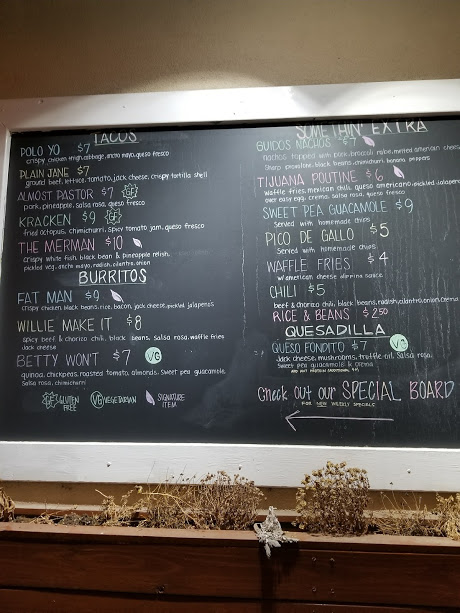 TACOS
POLO YO $7
crispy chicken thigh, cabbage, ancho mayo, queso fresco
PLAIN JANE $7
ground beef, lettuce, tomato, jack cheese, crispy tortilla shell
ALMOST PASTOR $7 GF
pork, pineapple, salsa rosa, queso fresco
KRACKEN $9 GF
fried octopus, chimichurri, spicy tomato jam, queso fresco
THE MERMAN $10
crispy white fish, black bean & pineapple relish,
pickled veg, ancho mayo, radish, cilantro, onion
BURRITOS
FAT MAN $9
crispy chicken, black beans, rice, bacon, jack cheese, pickled jalapeños
WILLIE MAKE IT $8
spicy beef & chorizo chili, black beans, salsa rosa, waffle fries
Jack cheese
BETTY WON'T $7 VG
quinoa, chickpeas, roasted tomato, almonds, sweet pea guacamole,
Salsa rosa, chimichurri
GF GLUTEN FREE
VG VEGETARIAN
SIGNATURE ITEM
SOMETHIN' EXTRA
GUIDOS NACHOS $7
nachos topped with pork, broccoli rabe, melted american cheese
Sharp provolone, black beans, chimichurri, banana peppers
TIJUANA POUTINE $6
Waffle fries, mexican chili, queso americano, pickled jalapeno
over easy egg, crema, salsa rosa, queso fresco
SWEET PEA GUACAMOLE $9
Served with homemade chips
PICO DE GALLO $5
Served with homemade chips
WAFFLE FRIES $4
w/american cheese dipping sauce
CHILI $5
beef & chorizo chili, black beans, radish, cilantro, onion, crema
RICE & BEANS $2.50
QUESADILLA
QUESO FONDITO $7 VG
Jack cheese, mushrooms, truffle oil, Salsa rosa,
Sweet pea guacamole & crema
Check out our SPECIAL BOARD
FOR NEW WEEKLY SPECIALS